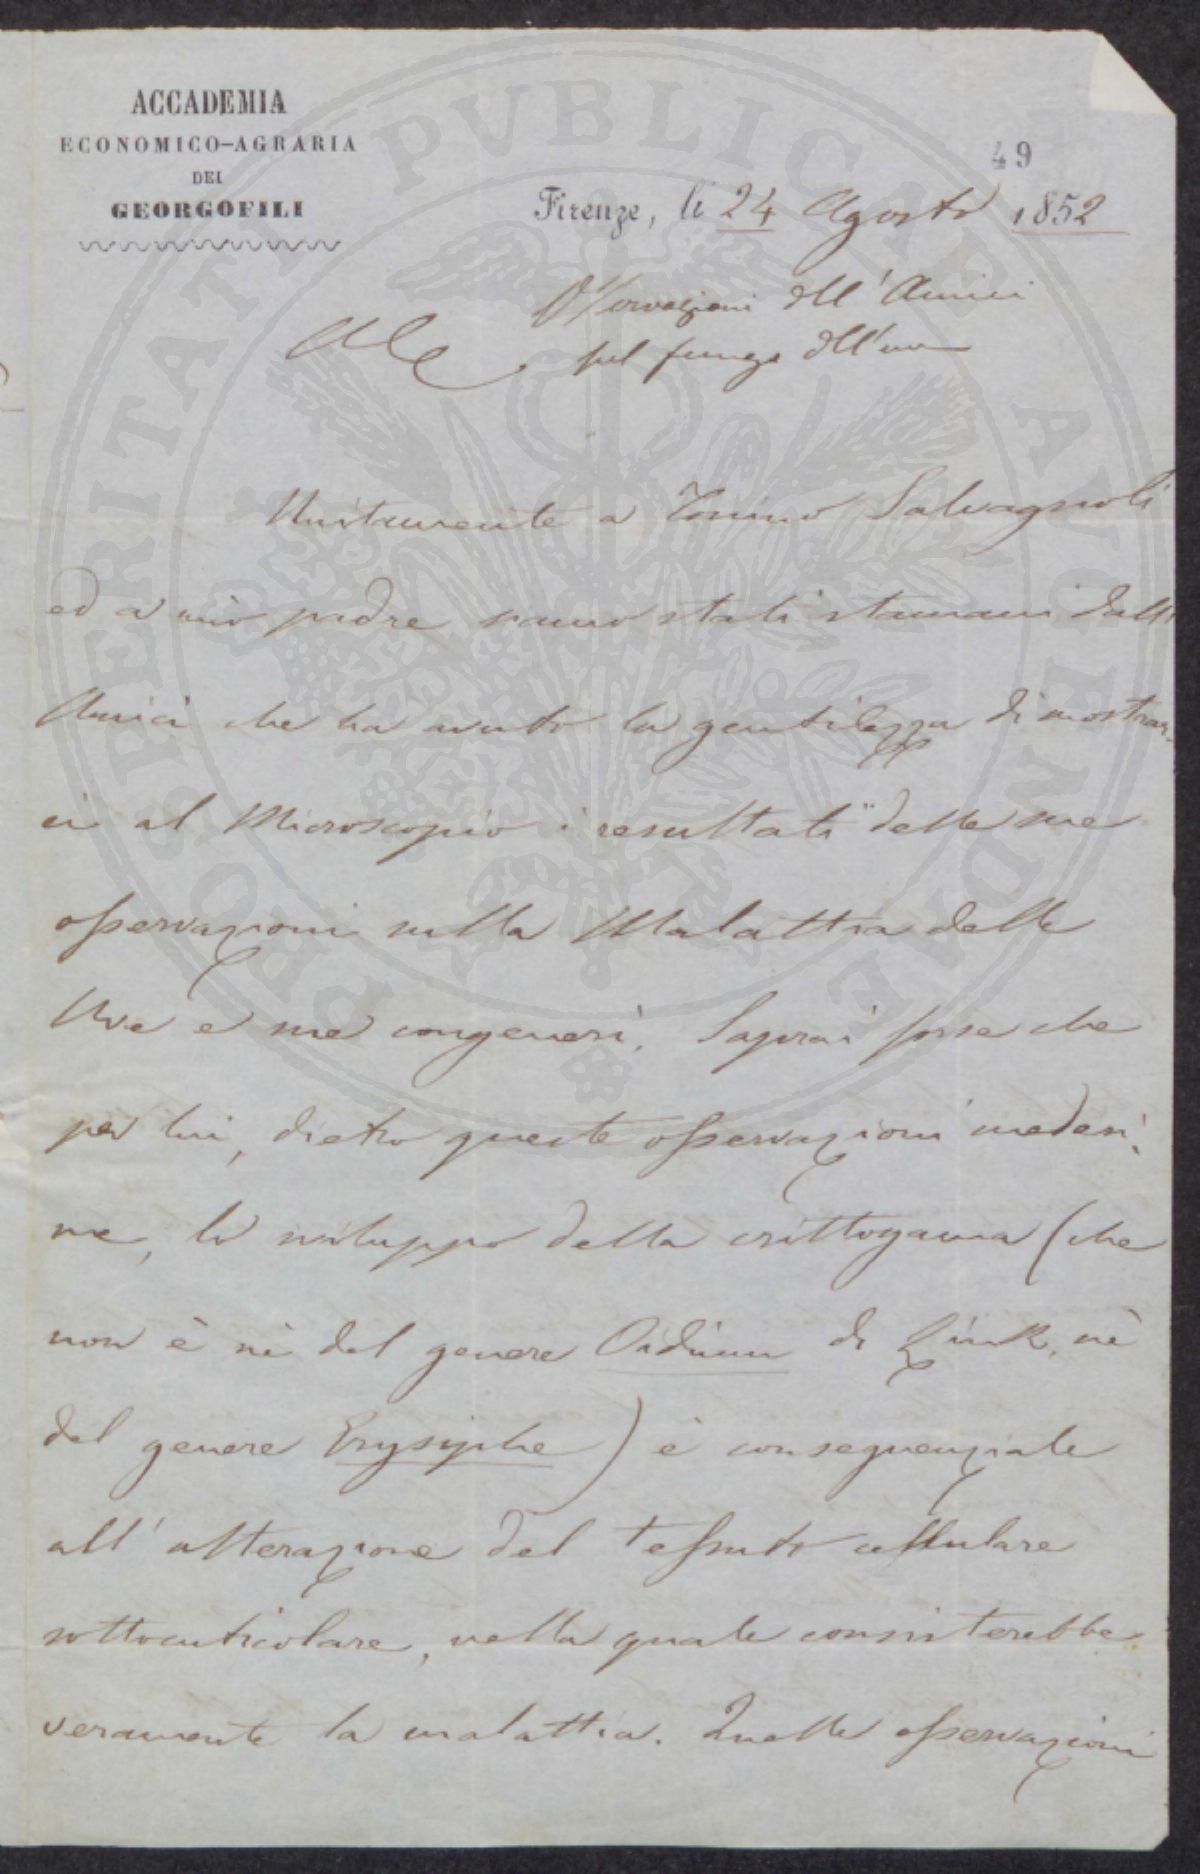 ACCADEMIA
ECONOMICO-AGRARIA
DEI
GEORGOFILI
49
Firenze, li 24 Agosto 1852
Osservazioni dell'Amici
sul fungo dell'uva
Unitamente a Tonino Salvagnoli
ed a mio padre siamo stati stamani dall'
Amici che ha avuto la gentilezza di mostrar-
ci al Microscopio i resultati delle sue
osservazioni sulla Malattia delle
Uve e sue congeneri. Saprai forse che
per lui, dietro queste osservazioni medesi-
me, lo sviluppo della crittogama (che
non è nè del genere Oidium di Link, nè
del genere Erysiphe) è conseguenziale
all'alterazione del tessuto cellulare
sottocuticolare, nella quale consisterebbe
veramente la malattia. Quelle osservazioni
PROSPERITATI PVBLICAE AVGENDAE